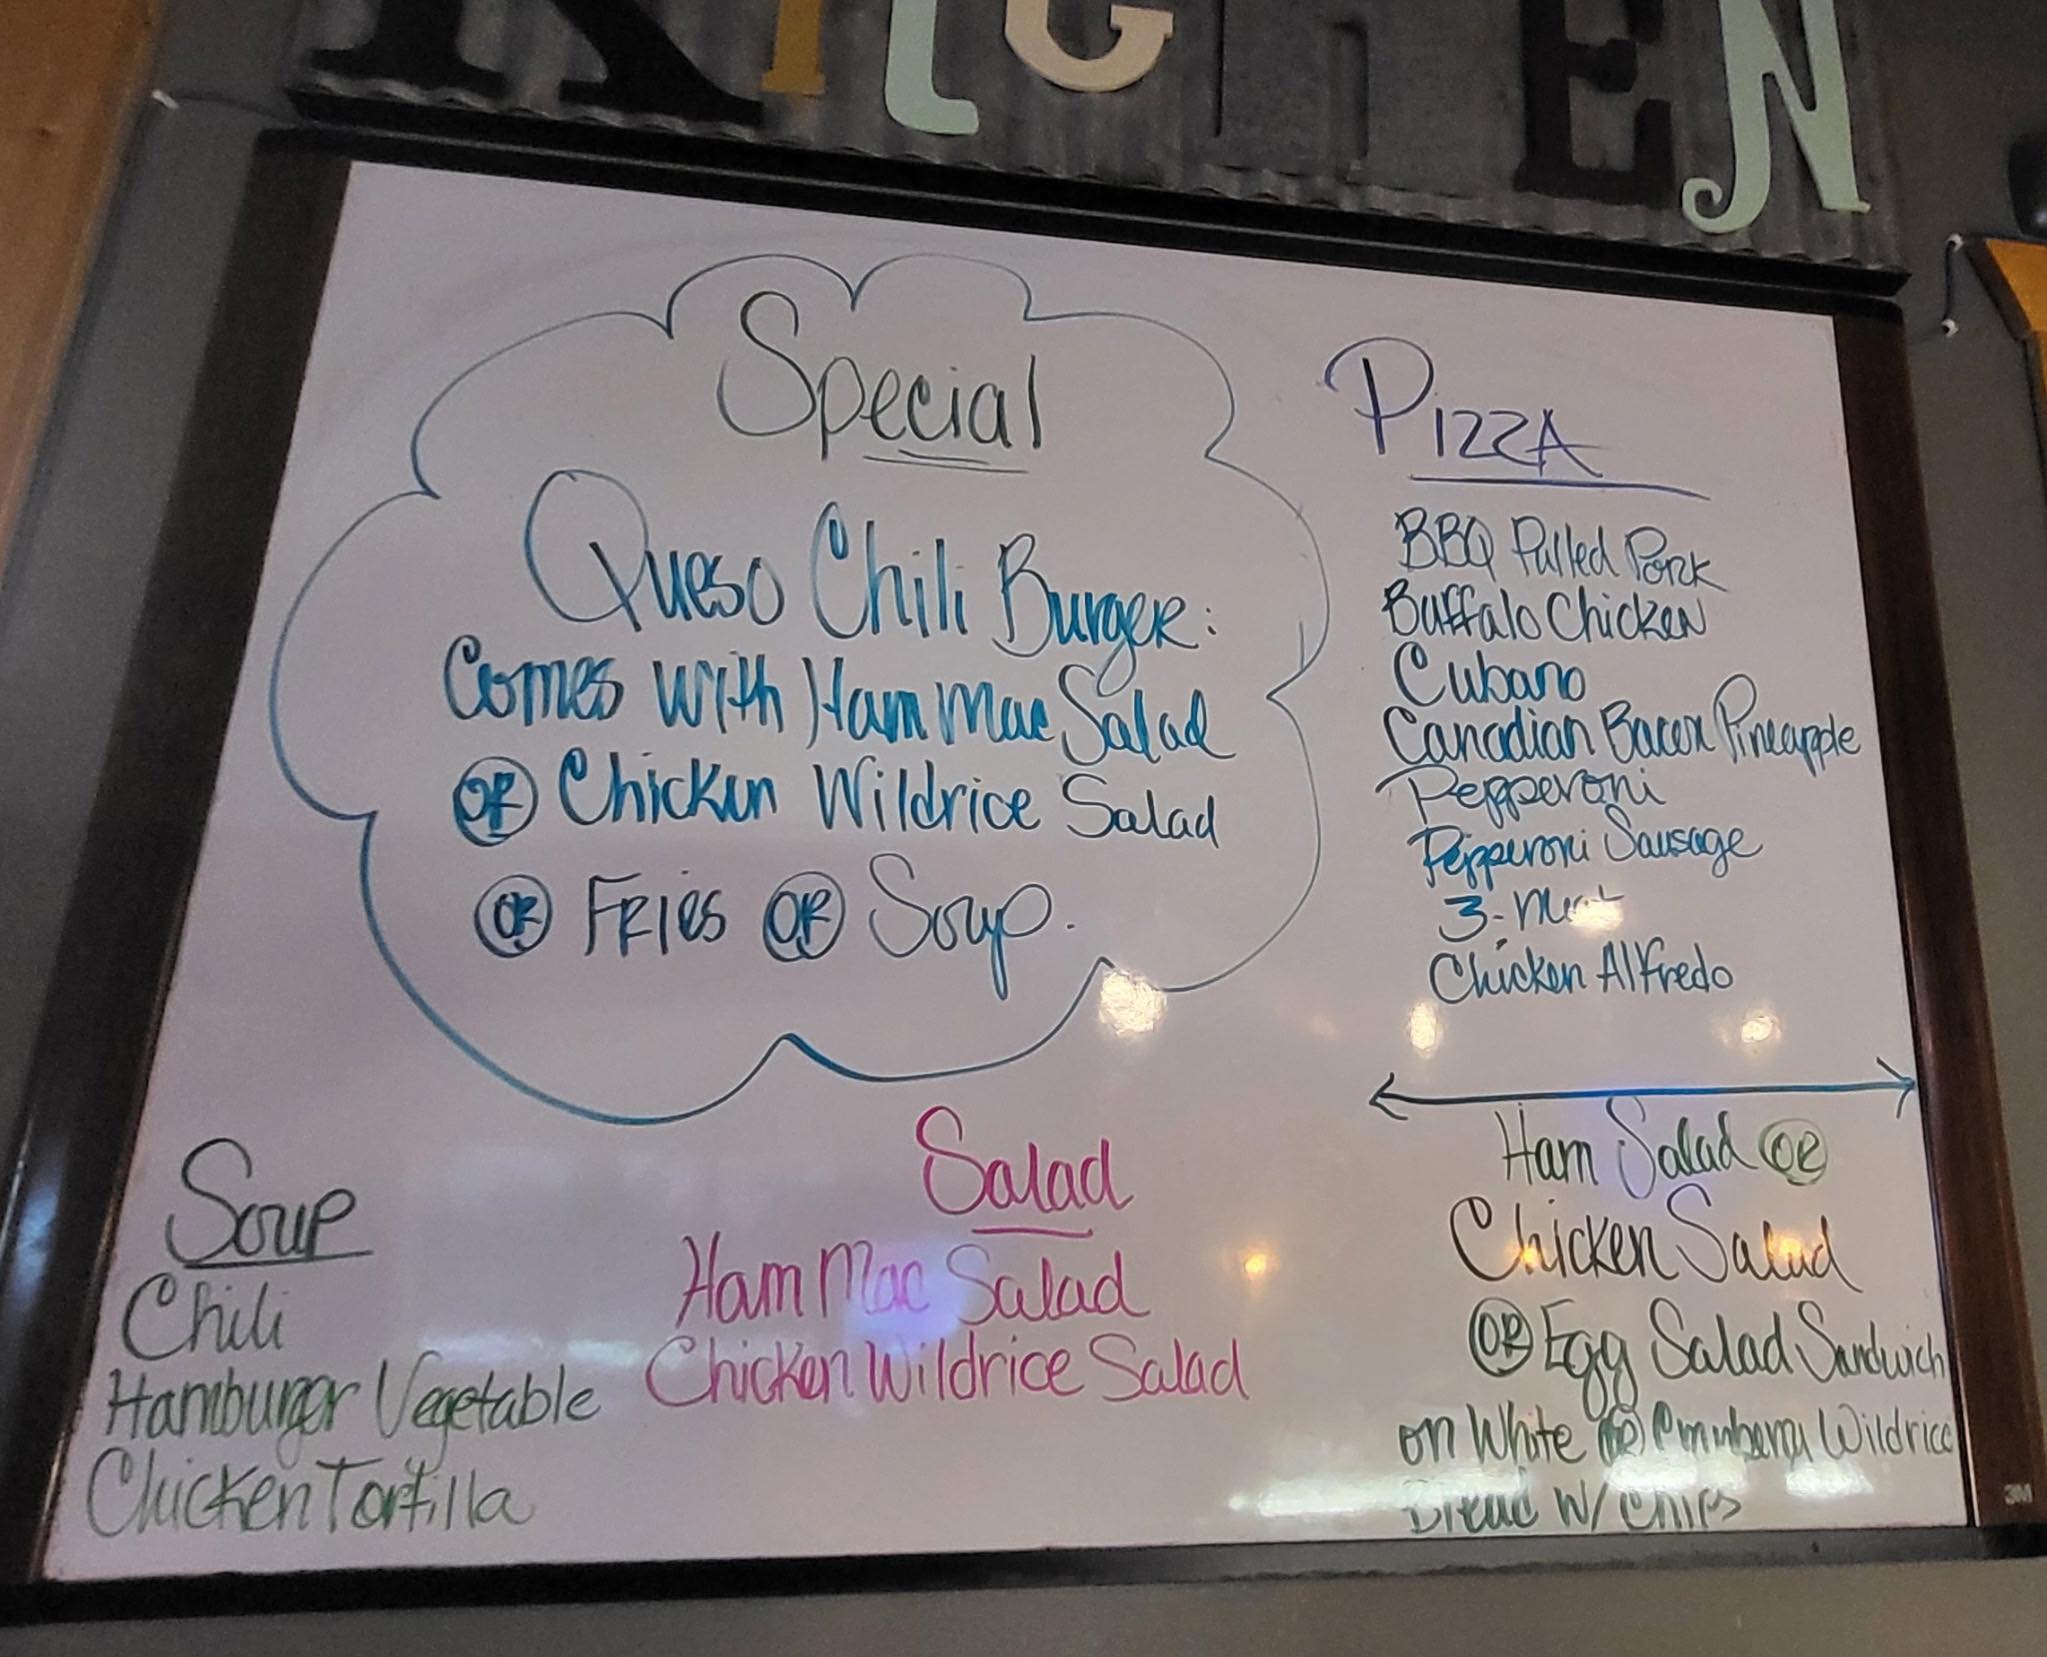 KITCHEN
Special
Queso Chili Burger:
Comes with Ham Mac Salad
OR Chicken Wildrice Salad
OR Fries OR Soup.
Pizza
BBQ Pulled Pork
Buffalo Chicken
Cubano
Canadian Bacon Pineapple
Pepperoni
Pepperoni Sausage
3-Meat
Chicken Alfredo
Soup
Chili
Hamburger Vegetable
Chicken Tortilla
Salad
Ham Mac Salad
Chicken Wildrice Salad
Ham Salad OR
Chicken Salad
OR Egg Salad Sandwich
on White OR Cranberry Wildrice
Bread w/ Chips
3M